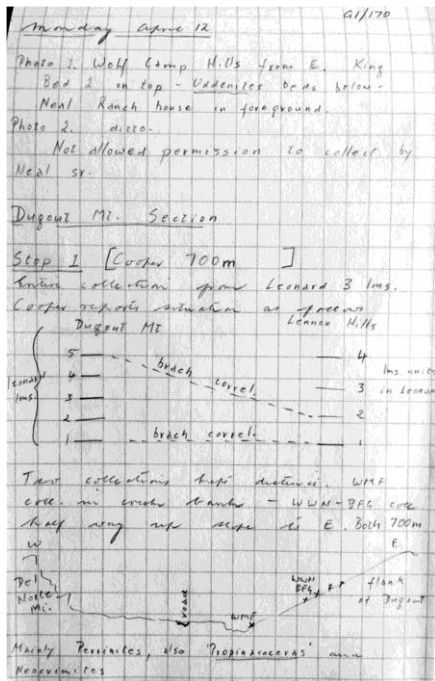 G1/170
Monday April 12
Photo 1. Wolf Camp Hills from E. King
Bed 2 on top - Uddenites beds below -
Neal Ranch house in foreground.
Photo 2. ditto.
Not allowed permission to collect by
Neal sr.
Dugout Mt. Section
Stop 1 [Cooper 700m ]
Entire collection from Leonard 3 lms.
Cooper reports situation as follows
Dugout Mt Lennox Hills
5 brach correl. 4
4 3 lms. units in Leonard
Leonard lms. 3
2 2
1 brach correl. 1
Two collections kept distinct. WMF
coll. in creek bank - WWN-BFG coll
half way up slope to E. Both 700m
W E
Del Norte Mt. road WMF WWN BFG flank of Dugout
Mainly Perrinites, also "Propinacoceras" and
Neocrimites